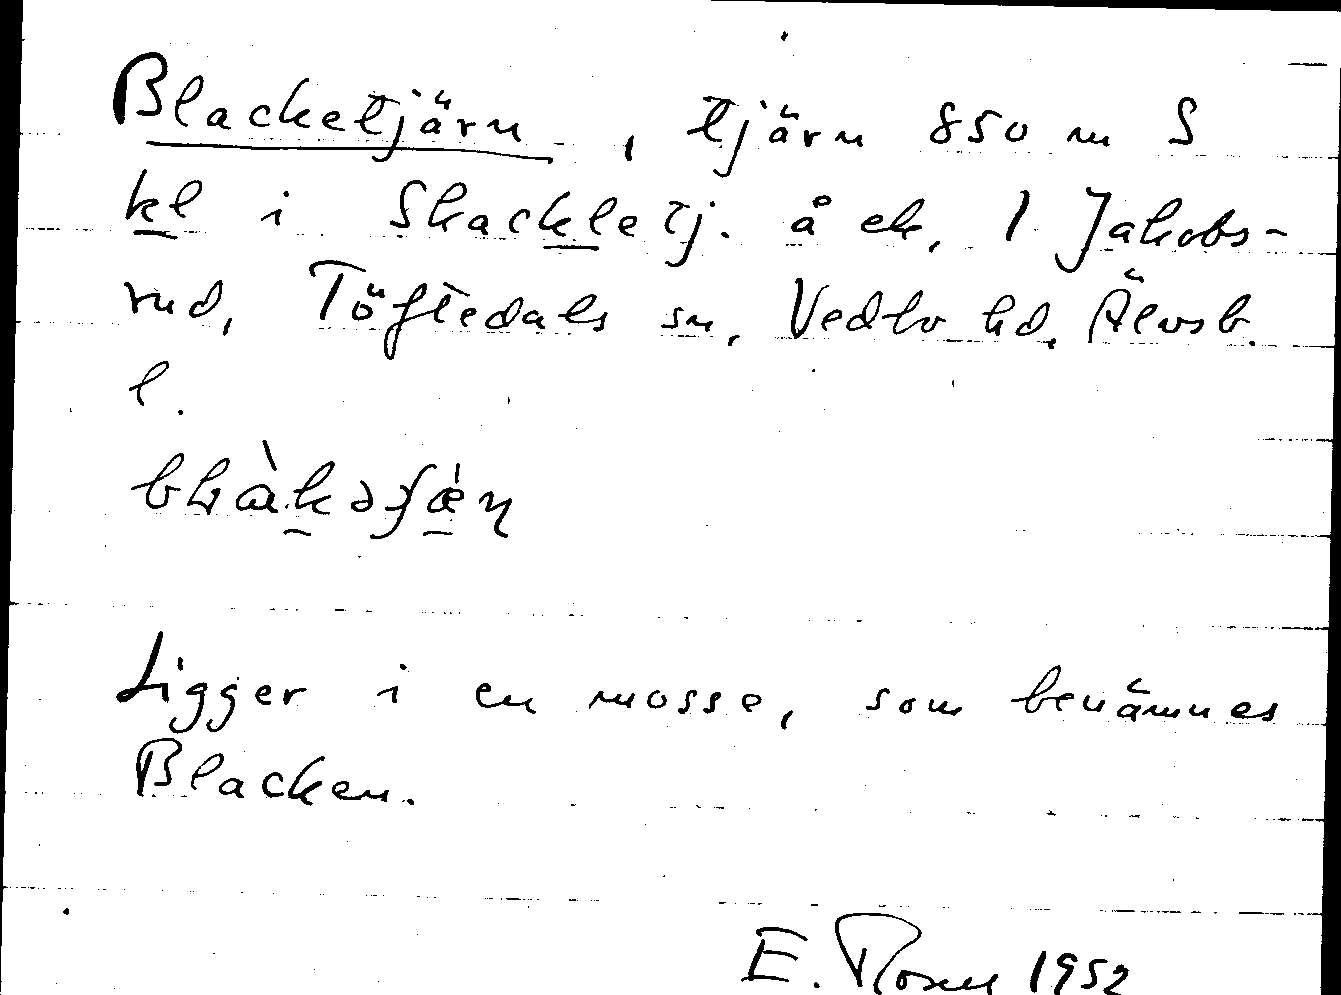 Blacketjärn, tjärn 850 m S
kl i Skackletj. å ek. 1 Jakobs-
rud, Töftedals sn, Vedbo hd, Älvsb.
l.
Ligger i en mosse, som benämnes
Blacken.
E. Rosen 1952